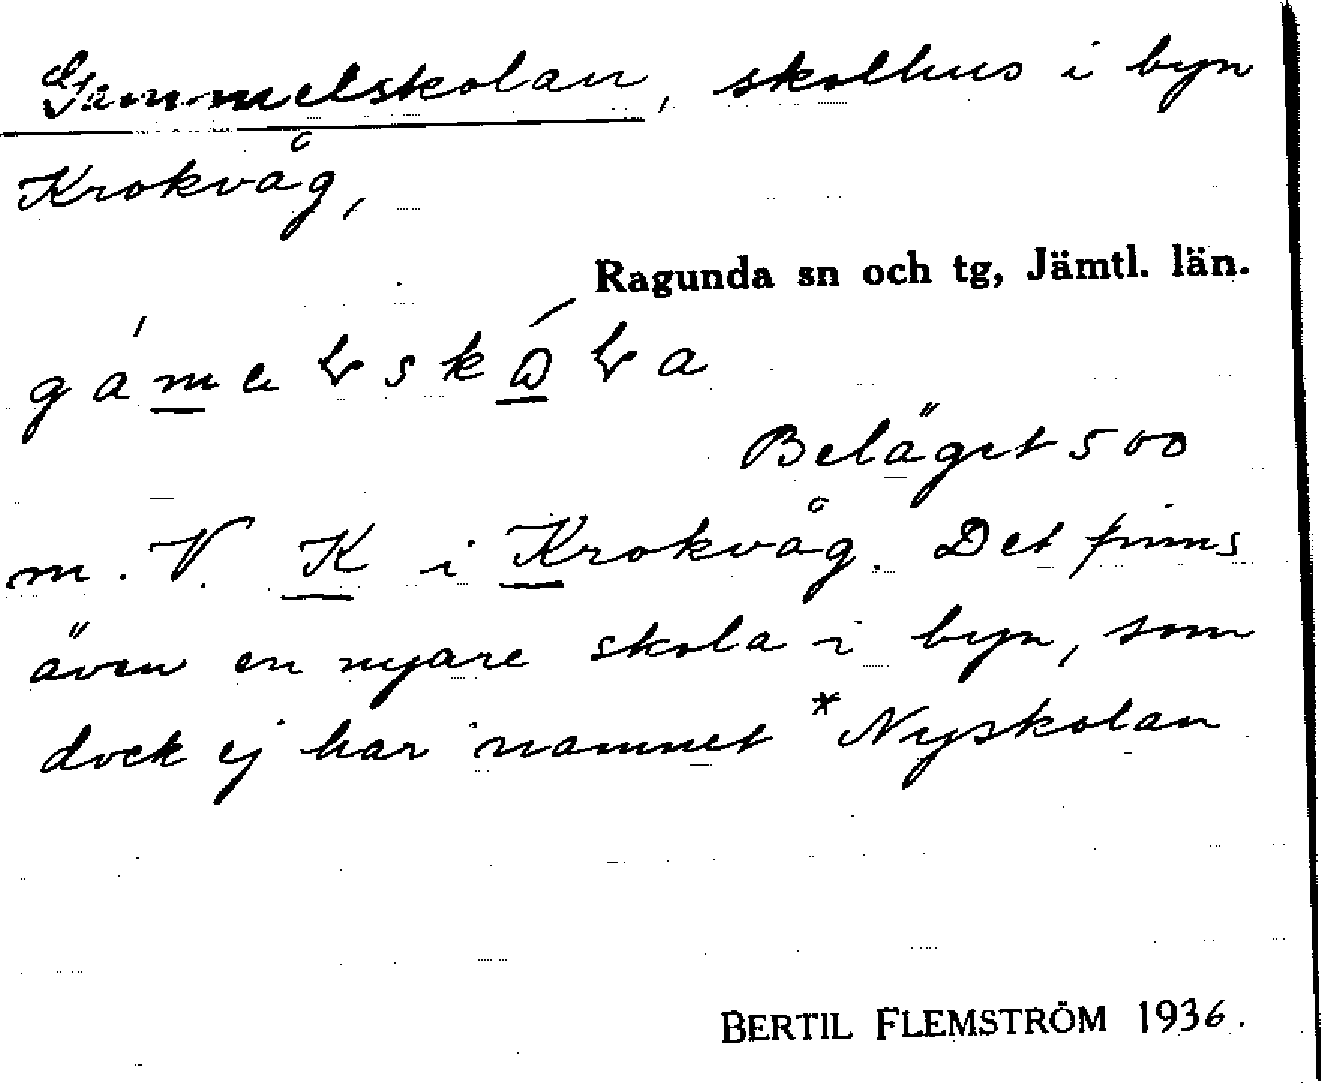 Gammelskolan, skolhus i byn
Krokvåg,
Ragunda sn och tg, Jämtl. län.
Beläget 500
m. V. K i Krokvåg. Det finns
även en nyare skola i byn, som
dock ej har namnet *Nyskolan
BERTIL FLEMSTRÖM 1936.